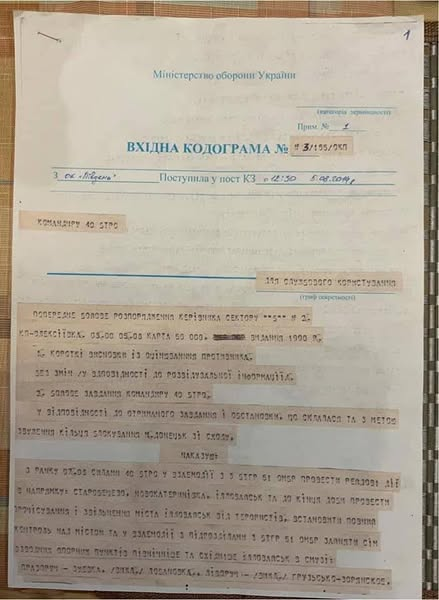 1
Міністерство оборони України
(категорія терміновості)
Прим. № 1
ВХІДНА КОДОГРАМА № # 3/195/ОКП
З ОК "Південь" Поступила у пост КЗ о 12:30 5.08.2014 р.
КОМАНДИРУ 40 БТРО
ДЛЯ СЛУЖБОВОГО КОРИСТУВАННЯ
(гриф секретності)
ПОПЕРЕДНЕ БОЙОВЕ РОЗПОРЯДЖЕННЯ КЕРІВНИКА СЕКТОРУ "Б" # 2.
КП-ОЛЕКСІЇВКА. 05.00 05.08 КАРТА 50 000. ВИДАННЯ 1990 Р.
КОРОТКІ ВИСНОВКИ ІЗ ОЦІНЮВАННЯ ПРОТИВНИКА.
БЕЗ ЗМІН /У ВІДПОВІДНОСТІ ДО РОЗВІДУВАЛЬНОЇ ІНФОРМАЦІЇ/.
БОЙОВЕ ЗАВДАННЯ КОМАНДИРУ 40 БТРО.
У ВІДПОВІДНОСТІ ДО ОТРИМАНОГО ЗАВДАННЯ І ОБСТАНОВКИ, ЩО СКЛАЛАСЯ ТА З МЕТОЮ
ЗВУЖЕННЯ КІЛЬЦЯ БЛОКУВАННЯ М.ДОНЕЦЬК ЗІ СХОДУ.
НАКАЗУЮ:
З РАНКУ 07.08 СИЛАМИ 40 БТРО У ВЗАЄМОДІЇ З 3 БТГР 51 ОМБР ПРОВЕСТИ РЕЙДОВІ ДІЇ
В НАПРЯМКУ: СТАРОБЕШЕВО, НОВОКАТЕРИНІВКА, ІЛОВАЙСЬК ТА ДО КІНЦЯ ДОБИ ПРОВЕСТИ
ПРОЧІСУВАННЯ І ЗВІЛЬНЕННЯ МІСТА ІЛОВАЙСЬК ВІД ТЕРОРИСТІВ, ВСТАНОВИТИ ПОВНИЙ
КОНТРОЛЬ НАД МІСТОМ ТА У ВЗАЄМОДІЇ З ПІДРОЗДІЛАМИ 3 БТГР 51 ОМБР ЗАЙНЯТИ СІМ
ВЗВОДНИХ ОПОРНИХ ПУНКТІВ ПІВНІЧНІШЕ ТА СХІДНІШЕ ІЛОВАЙСЬК В СМУЗІ:
ПРАВОРУЧ - ЗУЄВКА, /ВИКЛ./ ЛОБАНОВКА, ЛІВОРУЧ - /ВИКЛ./ ГРУЗЬСЬКО-ЗОРЯНСКОЕ.